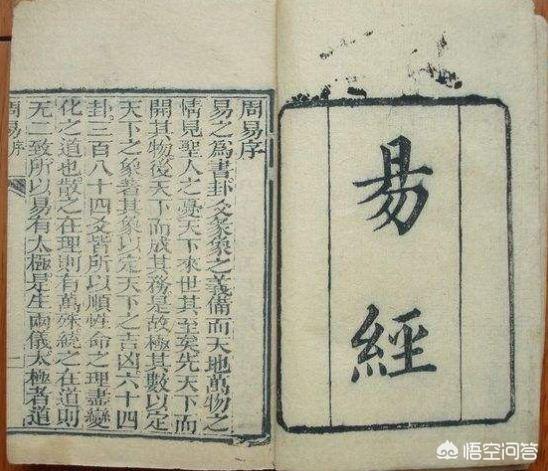 易經
周易序
易之爲書卦爻彖象之義備而天地萬物之
情見聖人之憂天下來世其至矣先天下而
開其物後天下而成其務是故極其數以定
天下之象著其象以定天下之吉凶六十四
卦三百八十四爻皆所以順性命之理盡變
化之道也散之在理則有萬殊統之在道則
无二致所以易有太極是生兩儀太極者道
周易序
一
悟空问答